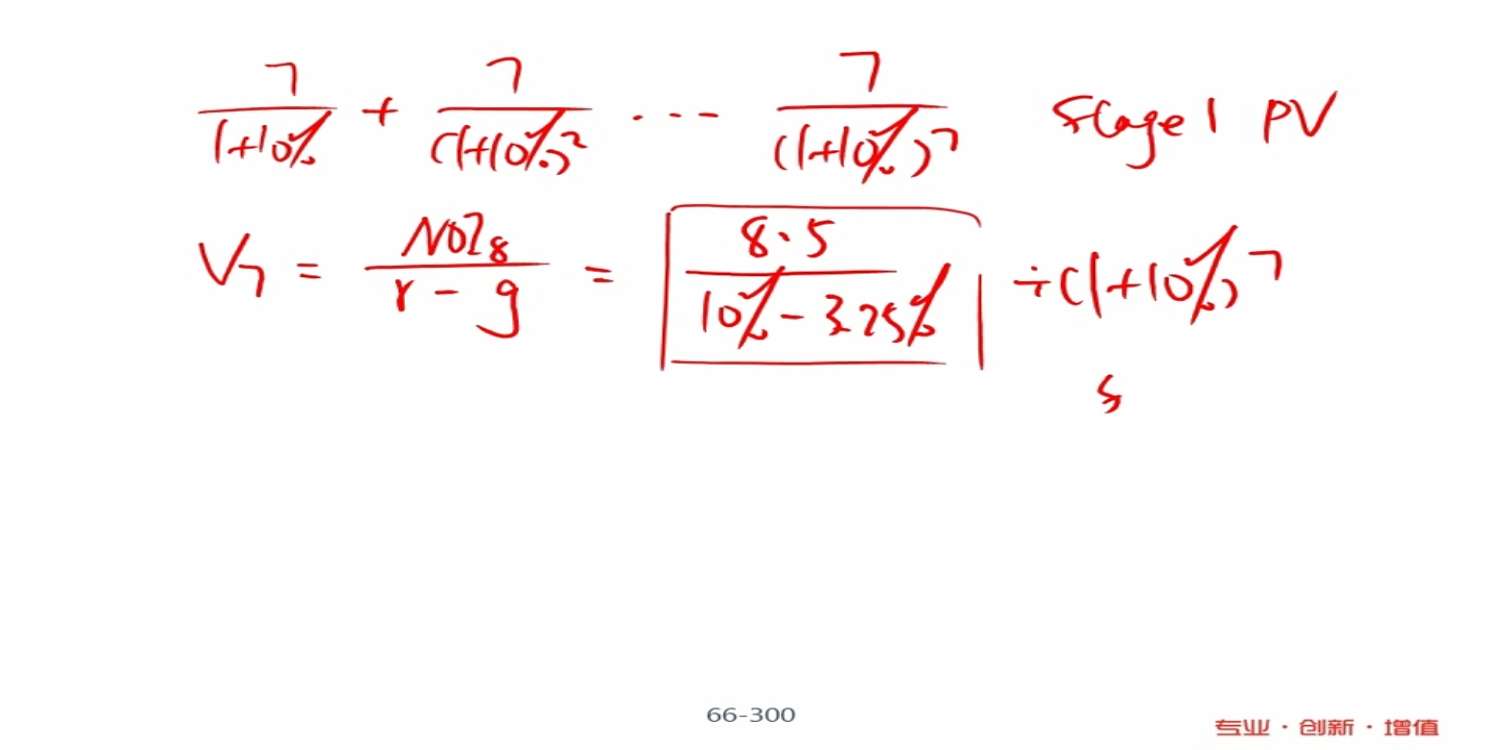 7/(1+10%) + 7/(1+10%)² ... 7/(1+10%)⁷ Stage 1 PV
V₇ = NOI₈/(r - g) = 8.5/(10% - 3.25%) ÷ (1+10%)⁷
s
66-300
专业 · 创新 · 增值